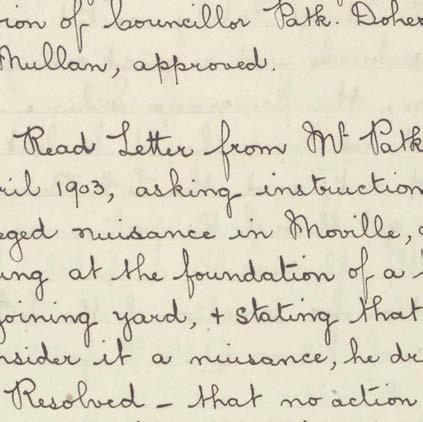 ion of Councillor Patk. Doher
Mullan, approved.
Read Letter from Mr Patk
ril 1903, asking instruction
eged nuisance in Moville,
ing at the foundation of a
joining yard, + stating that
nsider it a nuisance, he dr
Resolved - that no action